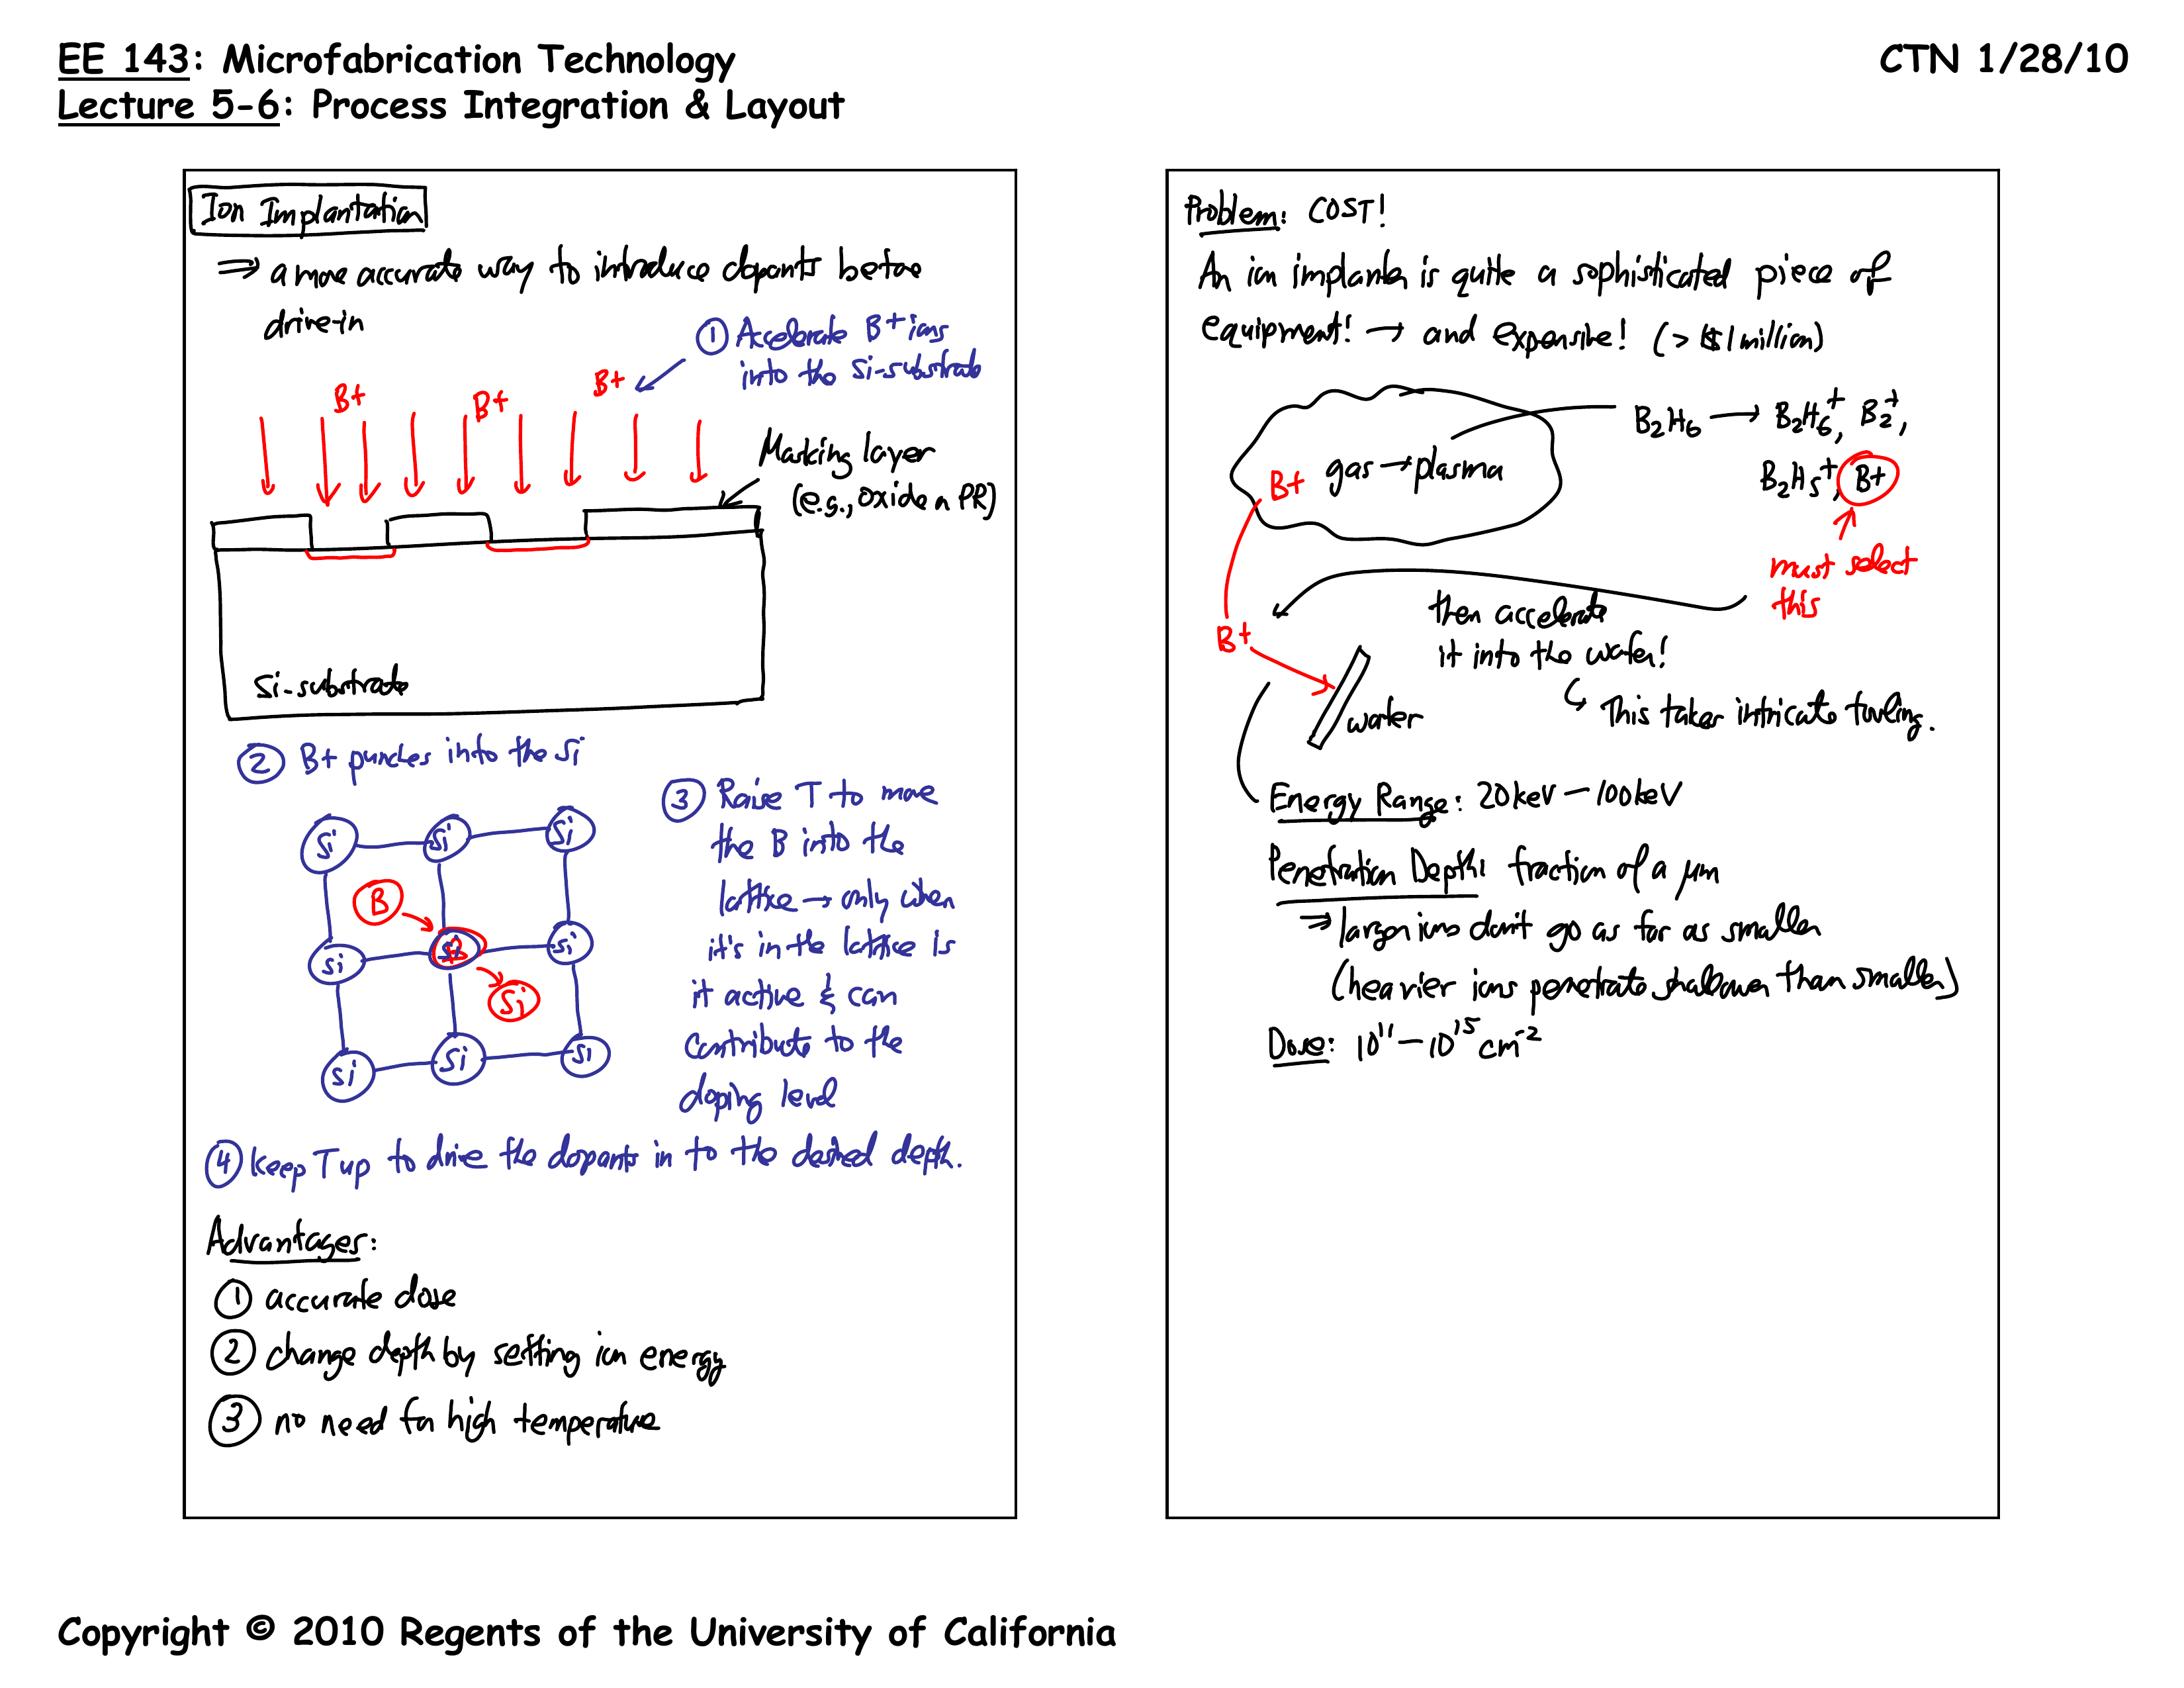 EE 143: Microfabrication Technology
CTN 1/28/10
Lecture 5-6: Process Integration & Layout
Ion Implantation
⇒ a more accurate way to introduce dopants before
drive-in
① Accelerate B+ ions
into the Si-substrate
B+ B+ B+
Masking layer
(e.g., oxide or PR)
Si-substrate
② B+ punches into the Si
Si Si Si
B
Si Si Si
Si
Si Si Si
③ Raise T to move
the B into the
lattice → only when
it's in the lattice is
it active & can
contribute to the
doping level
④ Keep T up to drive the dopants in to the desired depth.
Advantages:
① accurate dose
② change depth by setting ion energy
③ no need for high temperature
Problem: COST!
An ion implanter is quite a sophisticated piece of
equipment! → and expensive! (> $1 million)
B₂H₆ → B₂H₆⁺, B₂⁺,
B₂H₅⁺, B+
B+ gas → plasma
must select
this
then accelerate
it into the wafer!
B+
↳ This takes intricate tooling.
wafer
Energy Range: 20keV – 100keV
Penetration Depth: fraction of a μm
⇒ larger ions don't go as far as smaller
(heavier ions penetrate shallower than smaller)
Dose: 10¹¹ – 10¹⁵ cm⁻²
Copyright © 2010 Regents of the University of California